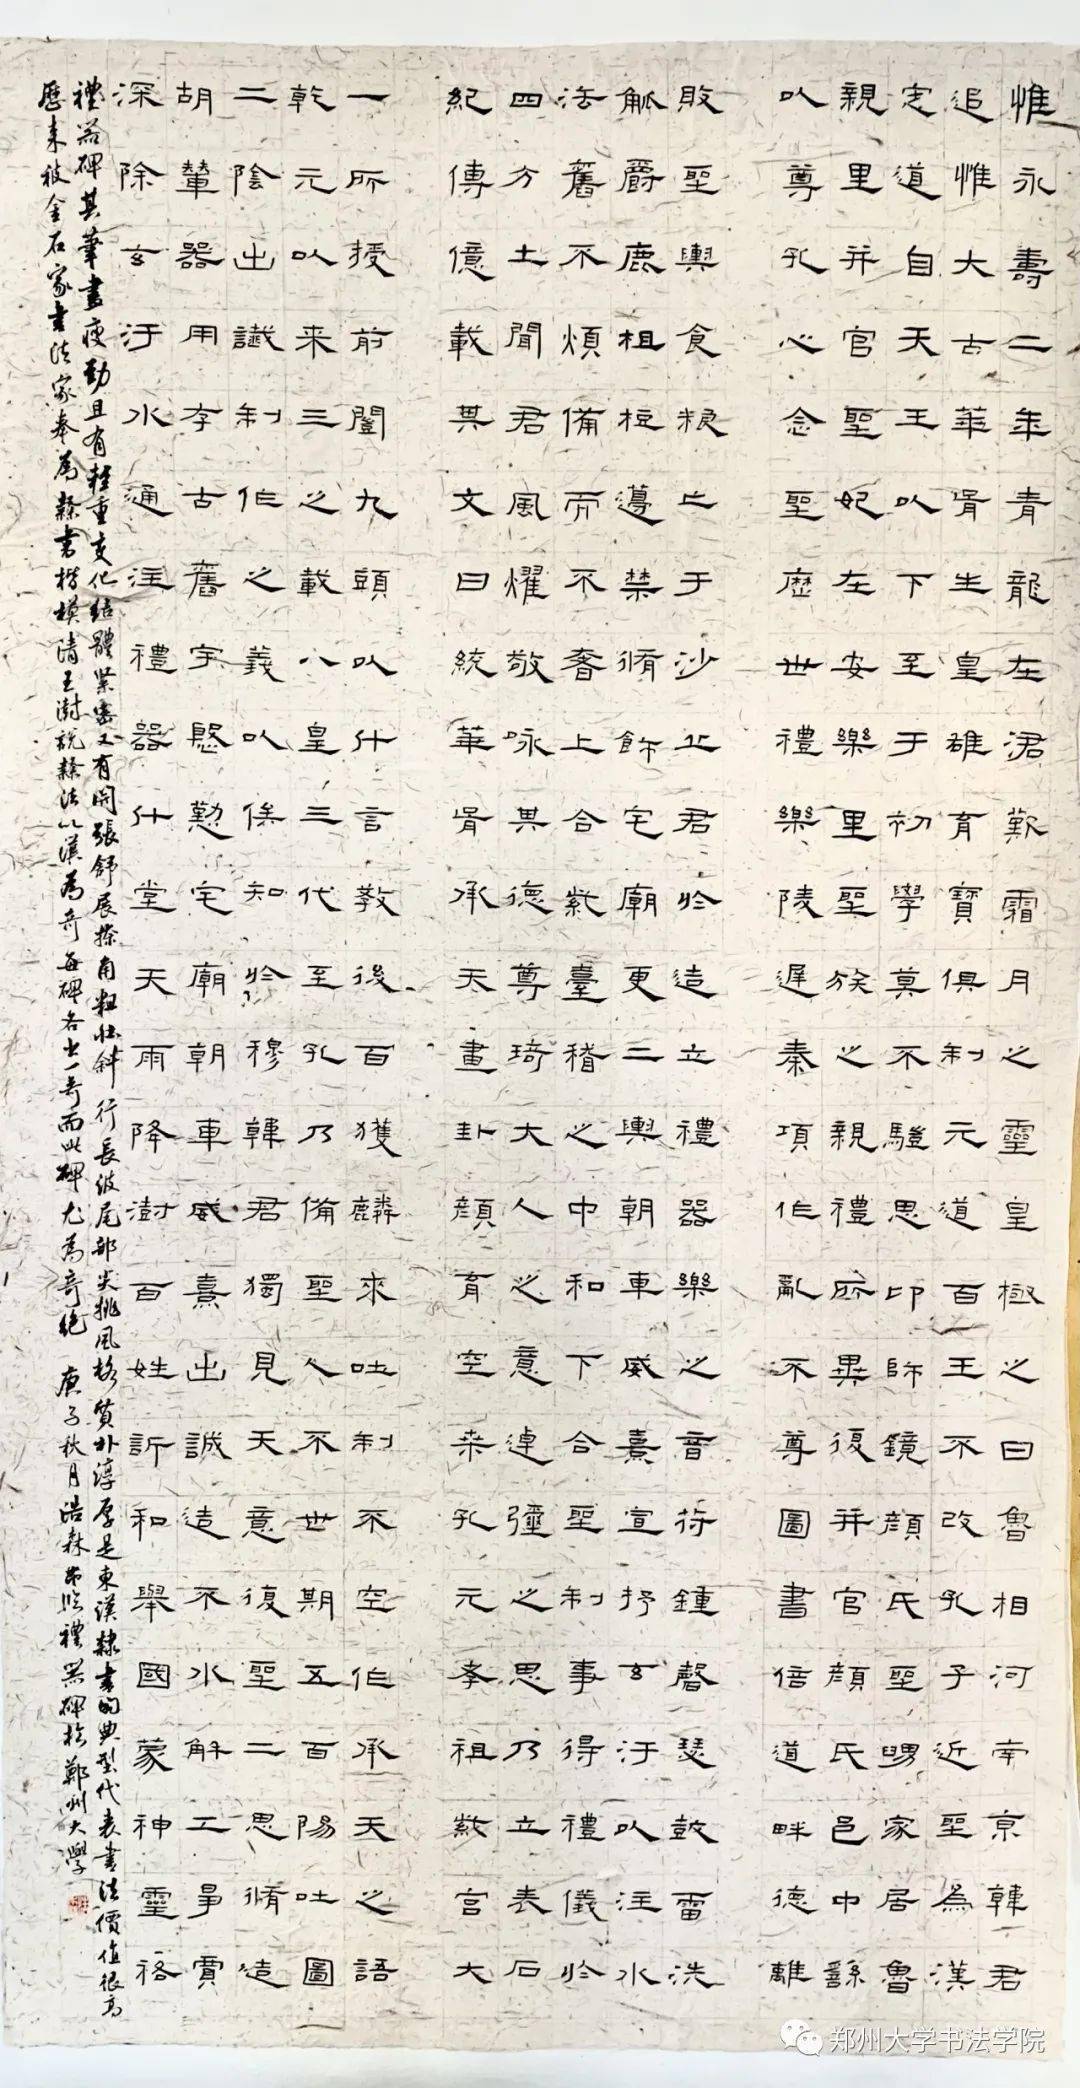 惟永壽二年青龍在涒歎霜月之靈皇極之日魯相河南京韓君
追惟大古華胥生皇雄育寶俱制元道百王不改孔子近聖為漢
定道自天王以下至于初學莫不驗思卬師鏡顏氏聖舅家居魯
親里并官聖妃在安樂里聖族之親禮所異復并官顏氏邑中繇
以尊孔心念聖歷世禮樂陵遲秦項作亂不尊圖書倍道畔德離
敗聖輿食粮亡于沙丘君於造立禮器樂之音符鍾磬瑟鼓雷洗
觚爵鹿柤梪籩禁脩飾宅廟更二輿朝車威熹宣抒玄汙以注水
法舊不煩備而不奢上合紫臺稽之中和下合聖制事得禮儀於
四方土聞君風燿敬咏其德尊琦大人之意逴彌之思乃立表石
紀傳億載其文曰統華胥承天畫卦顏育空桑孔元孝祖紫宮大
一所授前闓九頭以什言教後百獲麟來吐制不空作承天之語
乾元以来三之載八皇三代至孔乃備聖人不世期五百陽吐圖
二陰出讖制作之義以俟知於穆韓君獨見天意復聖二思脩造
胡輦器用存古舊宇慇懃宅廟朝車威熹出誠造不水解工爭賈
深除玄汙水通注禮器什堂天雨降澍百姓訢和舉國蒙神靈祐
禮器碑其筆畫瘦勁且有輕重变化結體紧密又有開張舒展捺角粗壮斜行長波尾部尖挑风格質朴淳厚是東漢隸書的典型代表書法價值很高
歷来被金石家書法家奉為隸書楷模清王澍說隸法以漢為奇每碑各出一奇而此碑尤為奇絕 庚子秋月浩森节临禮器碑於鄭州大學
郑州大学书法学院